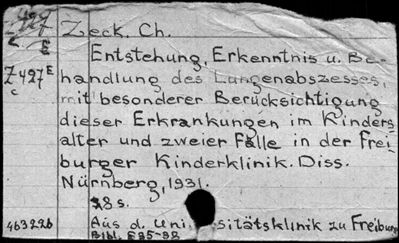 Z 427
c. E
Zeck. Ch.
Entstehung, Erkenntnis u. Be-
Z 427 E
c
handlung des Lungenabszesses,
mit besonderer Berücksichtigung
dieser Erkrankungen im Kinders
alter und zweier Fälle in der Frei
burger Kinderklinik. Diss.
Nürnberg, 1931.
38 s.
463226 Aus d. Uni sitätsklinik zu Freiburg
Bibl. S 35-38